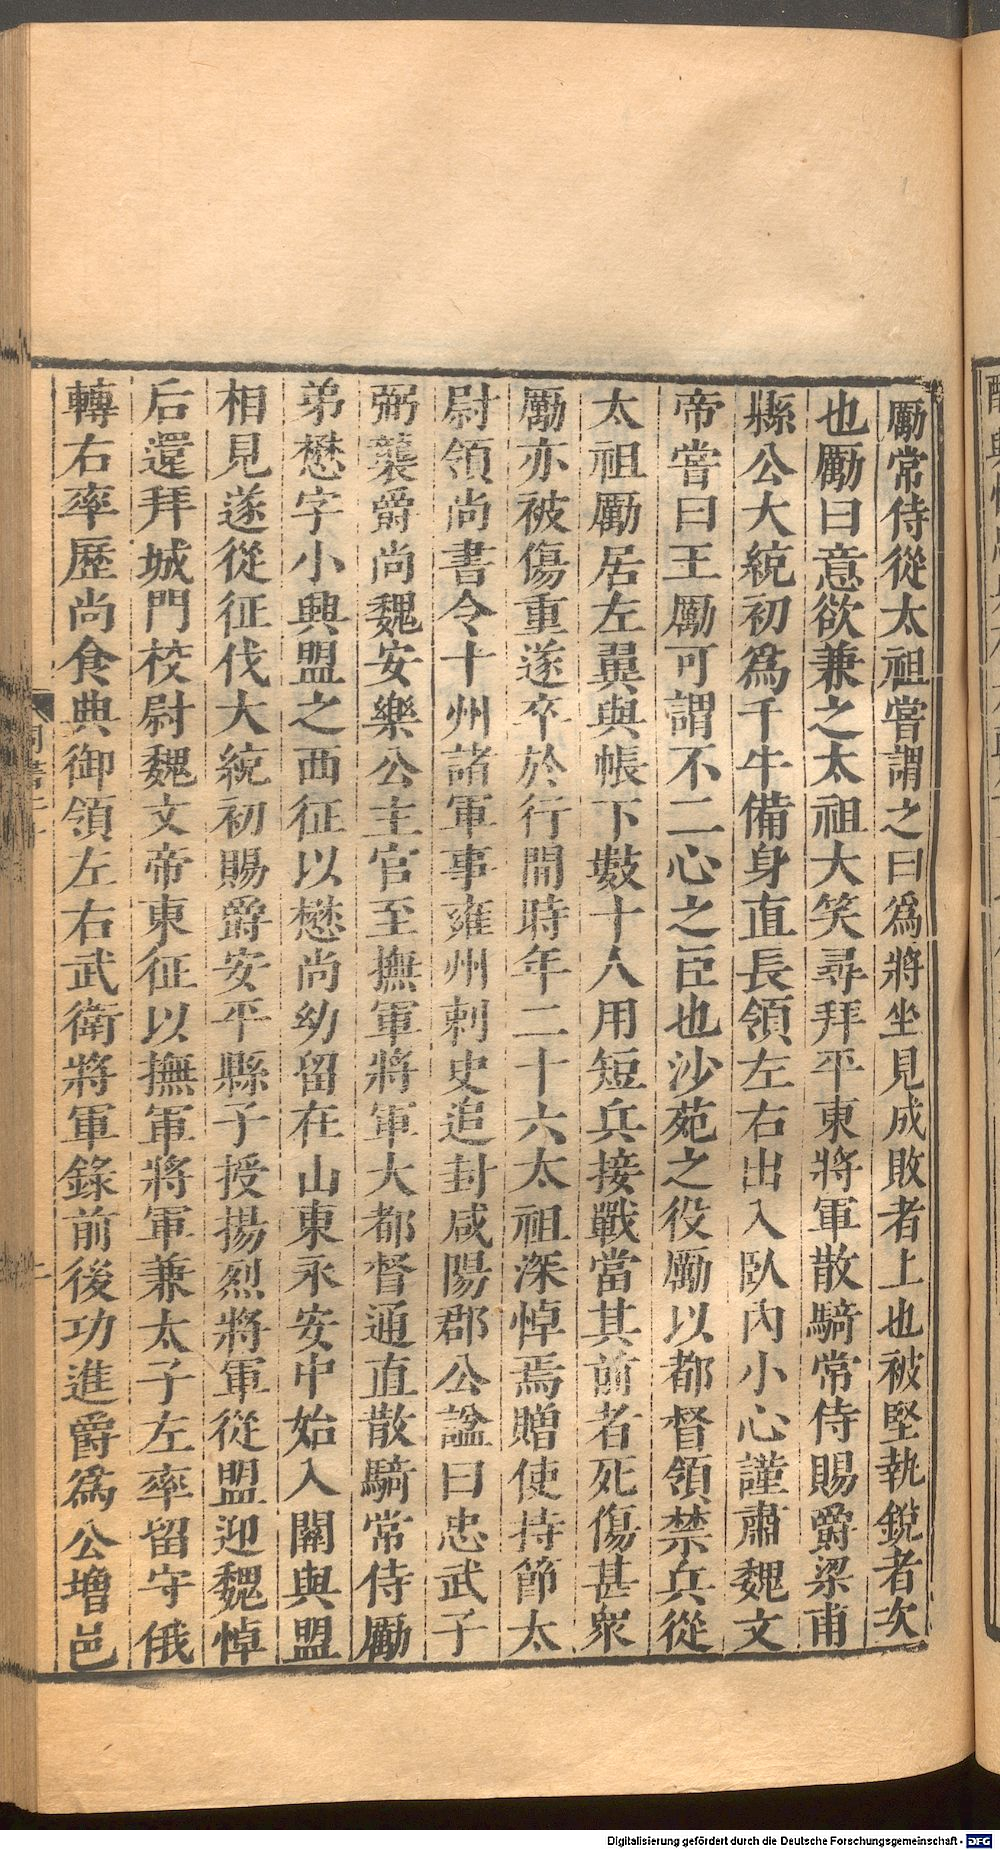 勵常侍從太祖嘗謂之曰爲將坐見成敗者上也被堅執銳者次
也勵曰意欲兼之太祖大笑尋拜平東將軍散騎常侍賜爵梁甫
縣公大統初爲千牛備身直長領左右出入臥內小心謹肅魏文
帝嘗曰王勵可謂不二心之臣也沙苑之役勵以都督領禁兵從
太祖勵居左翼與帳下數十人用短兵接戰當其前者死傷甚衆
勵亦被傷重遂卒於行間時年二十六太祖深悼焉贈使持節太
尉領尚書令十州諸軍事雍州刺史追封咸陽郡公諡曰忠武子
弼襲爵尚魏安樂公主官至撫軍將軍大都督通直散騎常侍勵
弟懋字小興盟之西征以懋尚幼留在山東永安中始入關與盟
相見遂從征伐大統初賜爵安平縣子授揚烈將軍從盟迎魏悼
后還拜城門校尉魏文帝東征以撫軍將軍兼太子左率留守俄
轉右率歷尚食典御領左右武衛將軍錄前後功進爵爲公增邑
Digitalisierung gefördert durch die Deutsche Forschungsgemeinschaft - DFG